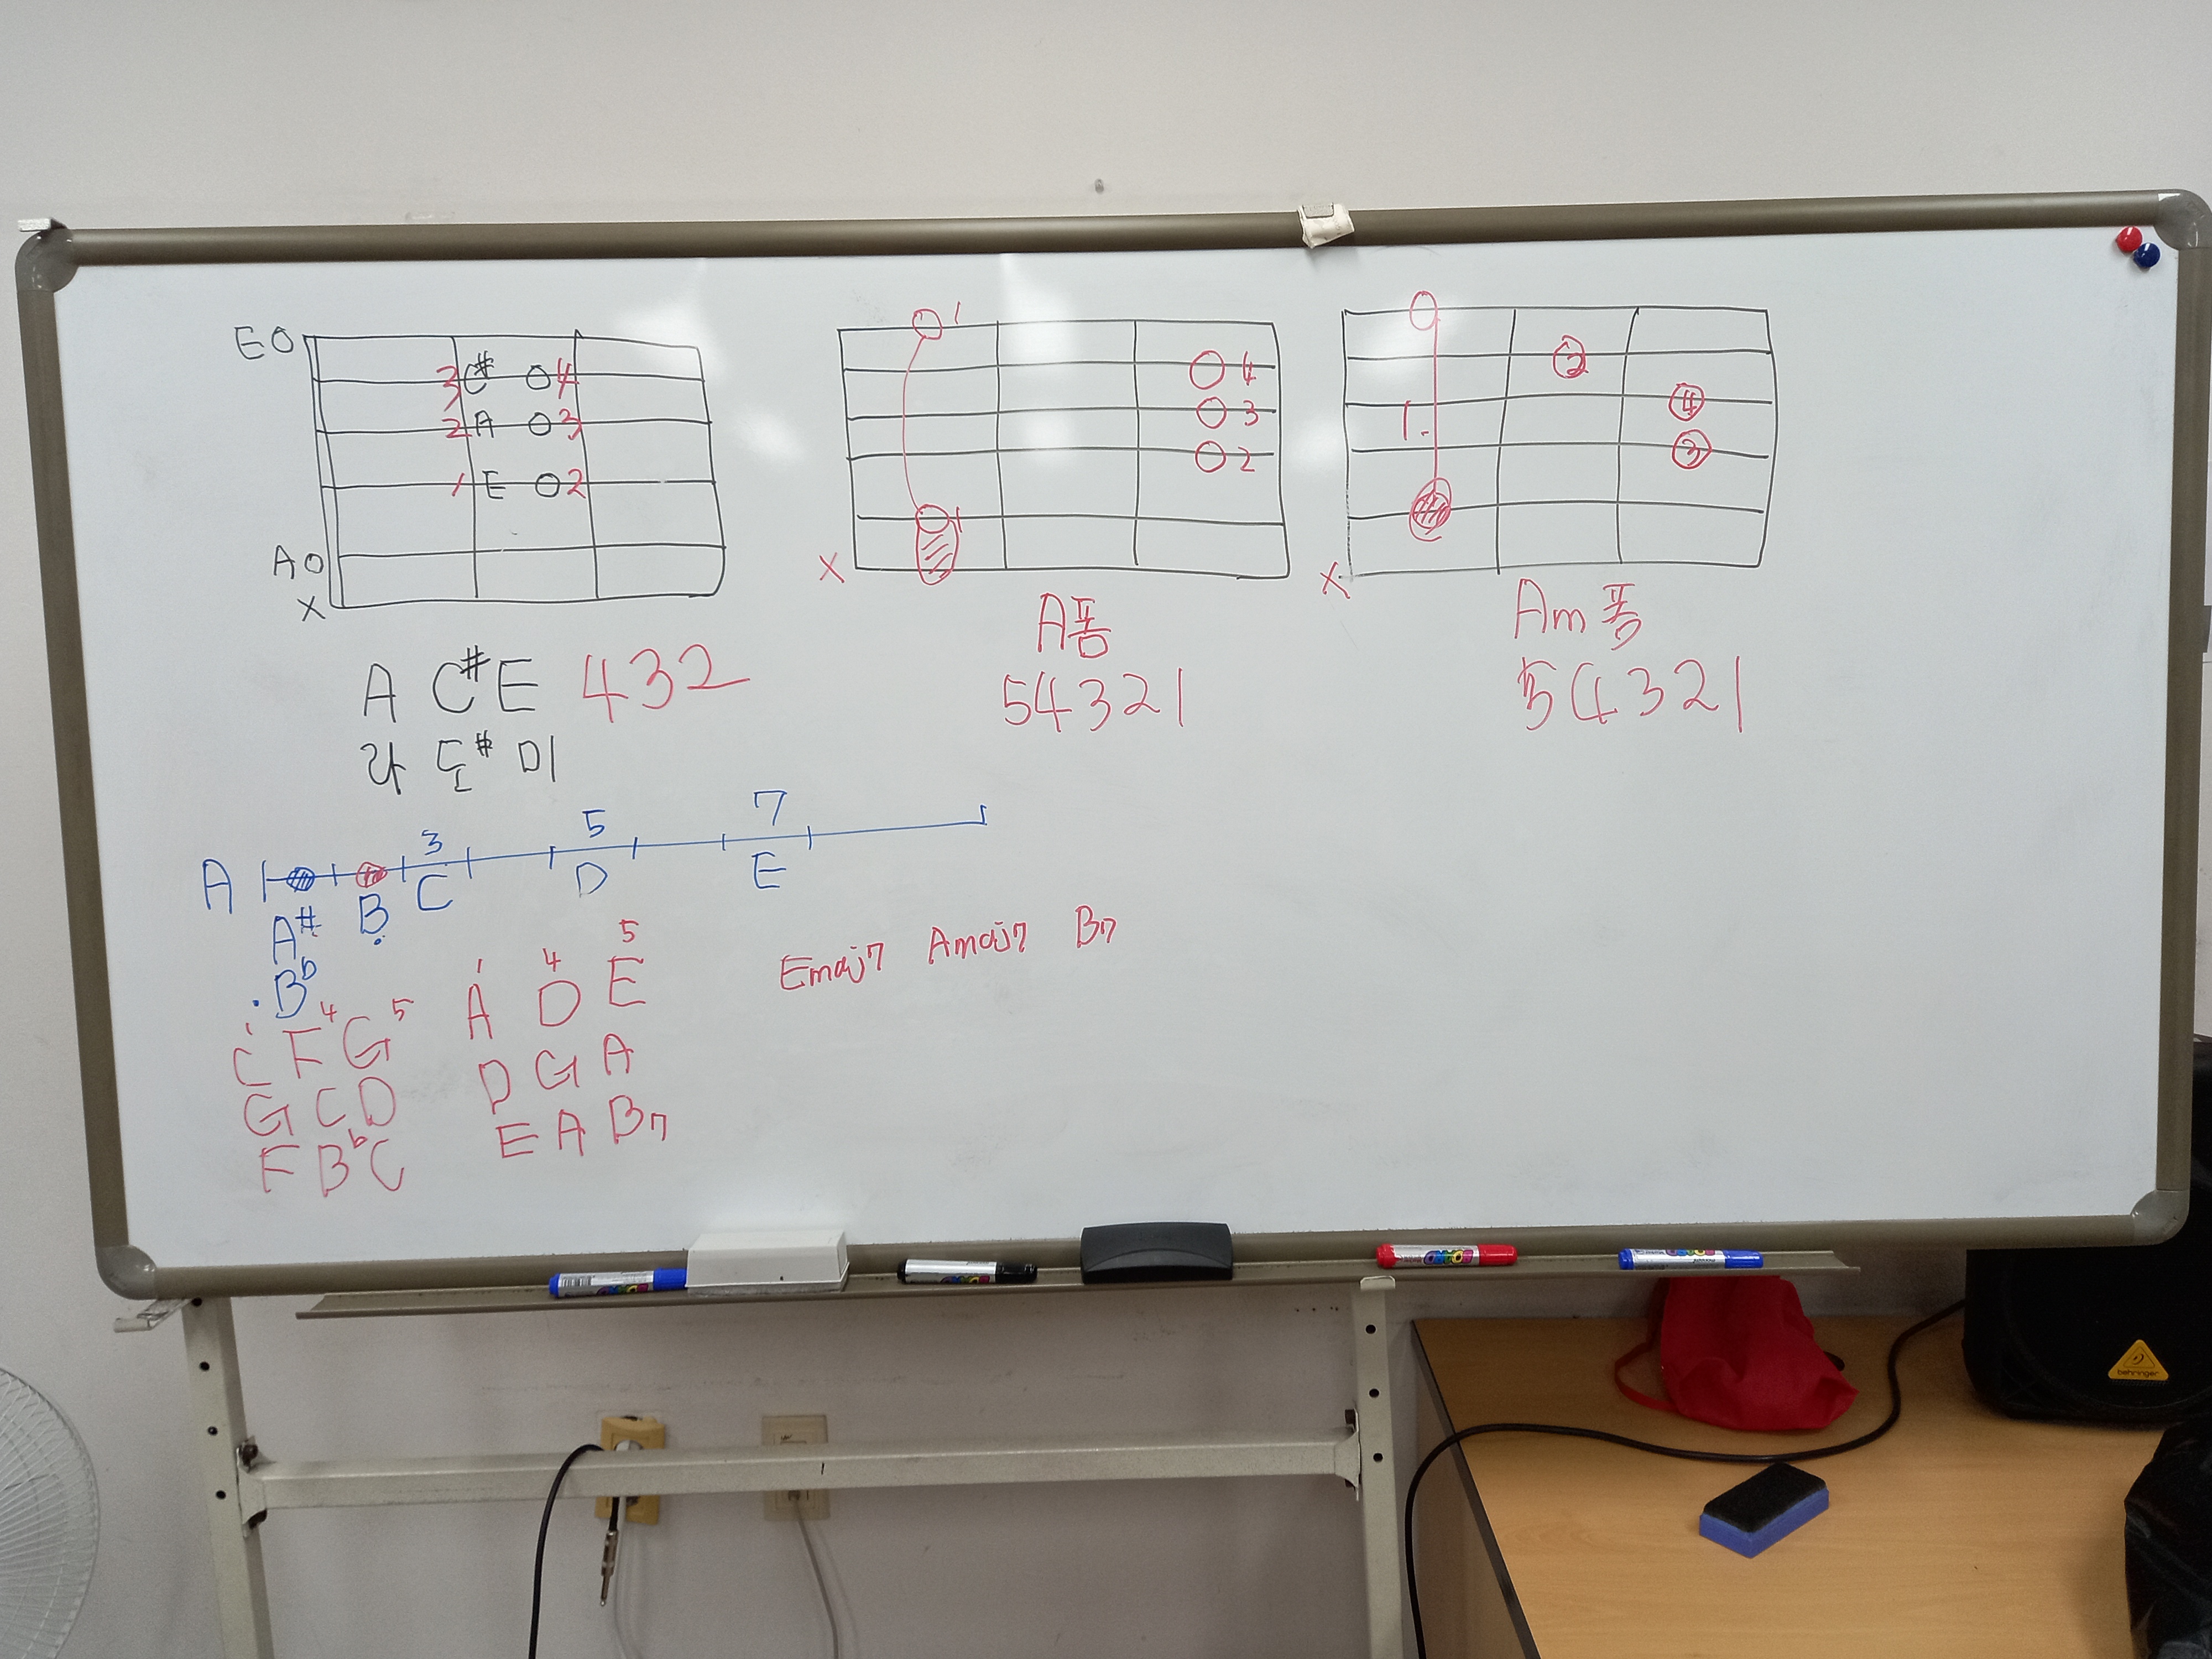 E O
3 C# O 4
2 A O 3
1 E O 2
A O
X
A C# E 432
라 도# 미
1
4
3
2
1
X
A폼
54321
2
4
1.
3
X
Am폼
54321
3 5 7
A C D E
A# B
Bb
1 4 5
C F G
G C D
F Bb C
1 4 5
A D E
D G A
E A B7
Emaj7 Amaj7 B7
behringer